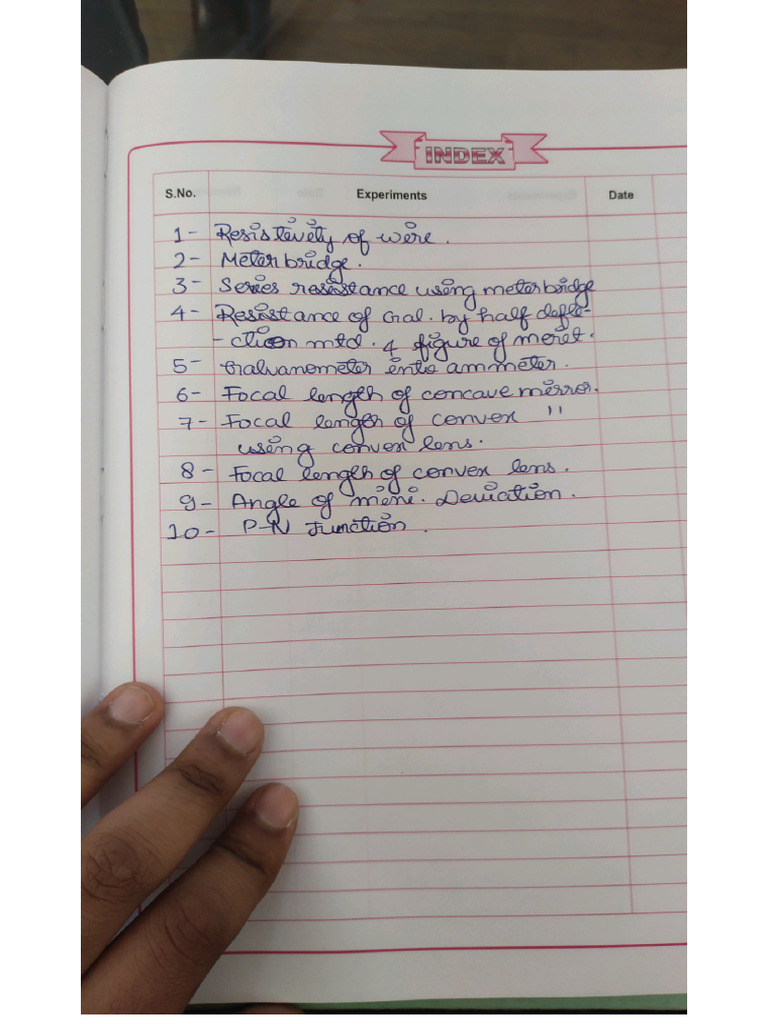 INDEX
S.No. Experiments Date
1- Resistivity of wire.
2- Meter bridge.
3- Series resistance using meter bridge
4- Resistance of Gal. by half defle-
-ction mtd. & figure of merit.
5- Galvanometer into ammeter.
6- Focal length of concave mirror.
7- Focal length of convex "
using convex lens.
8- Focal length of convex lens.
9- Angle of mini. Deviation.
10- P-N Junction.